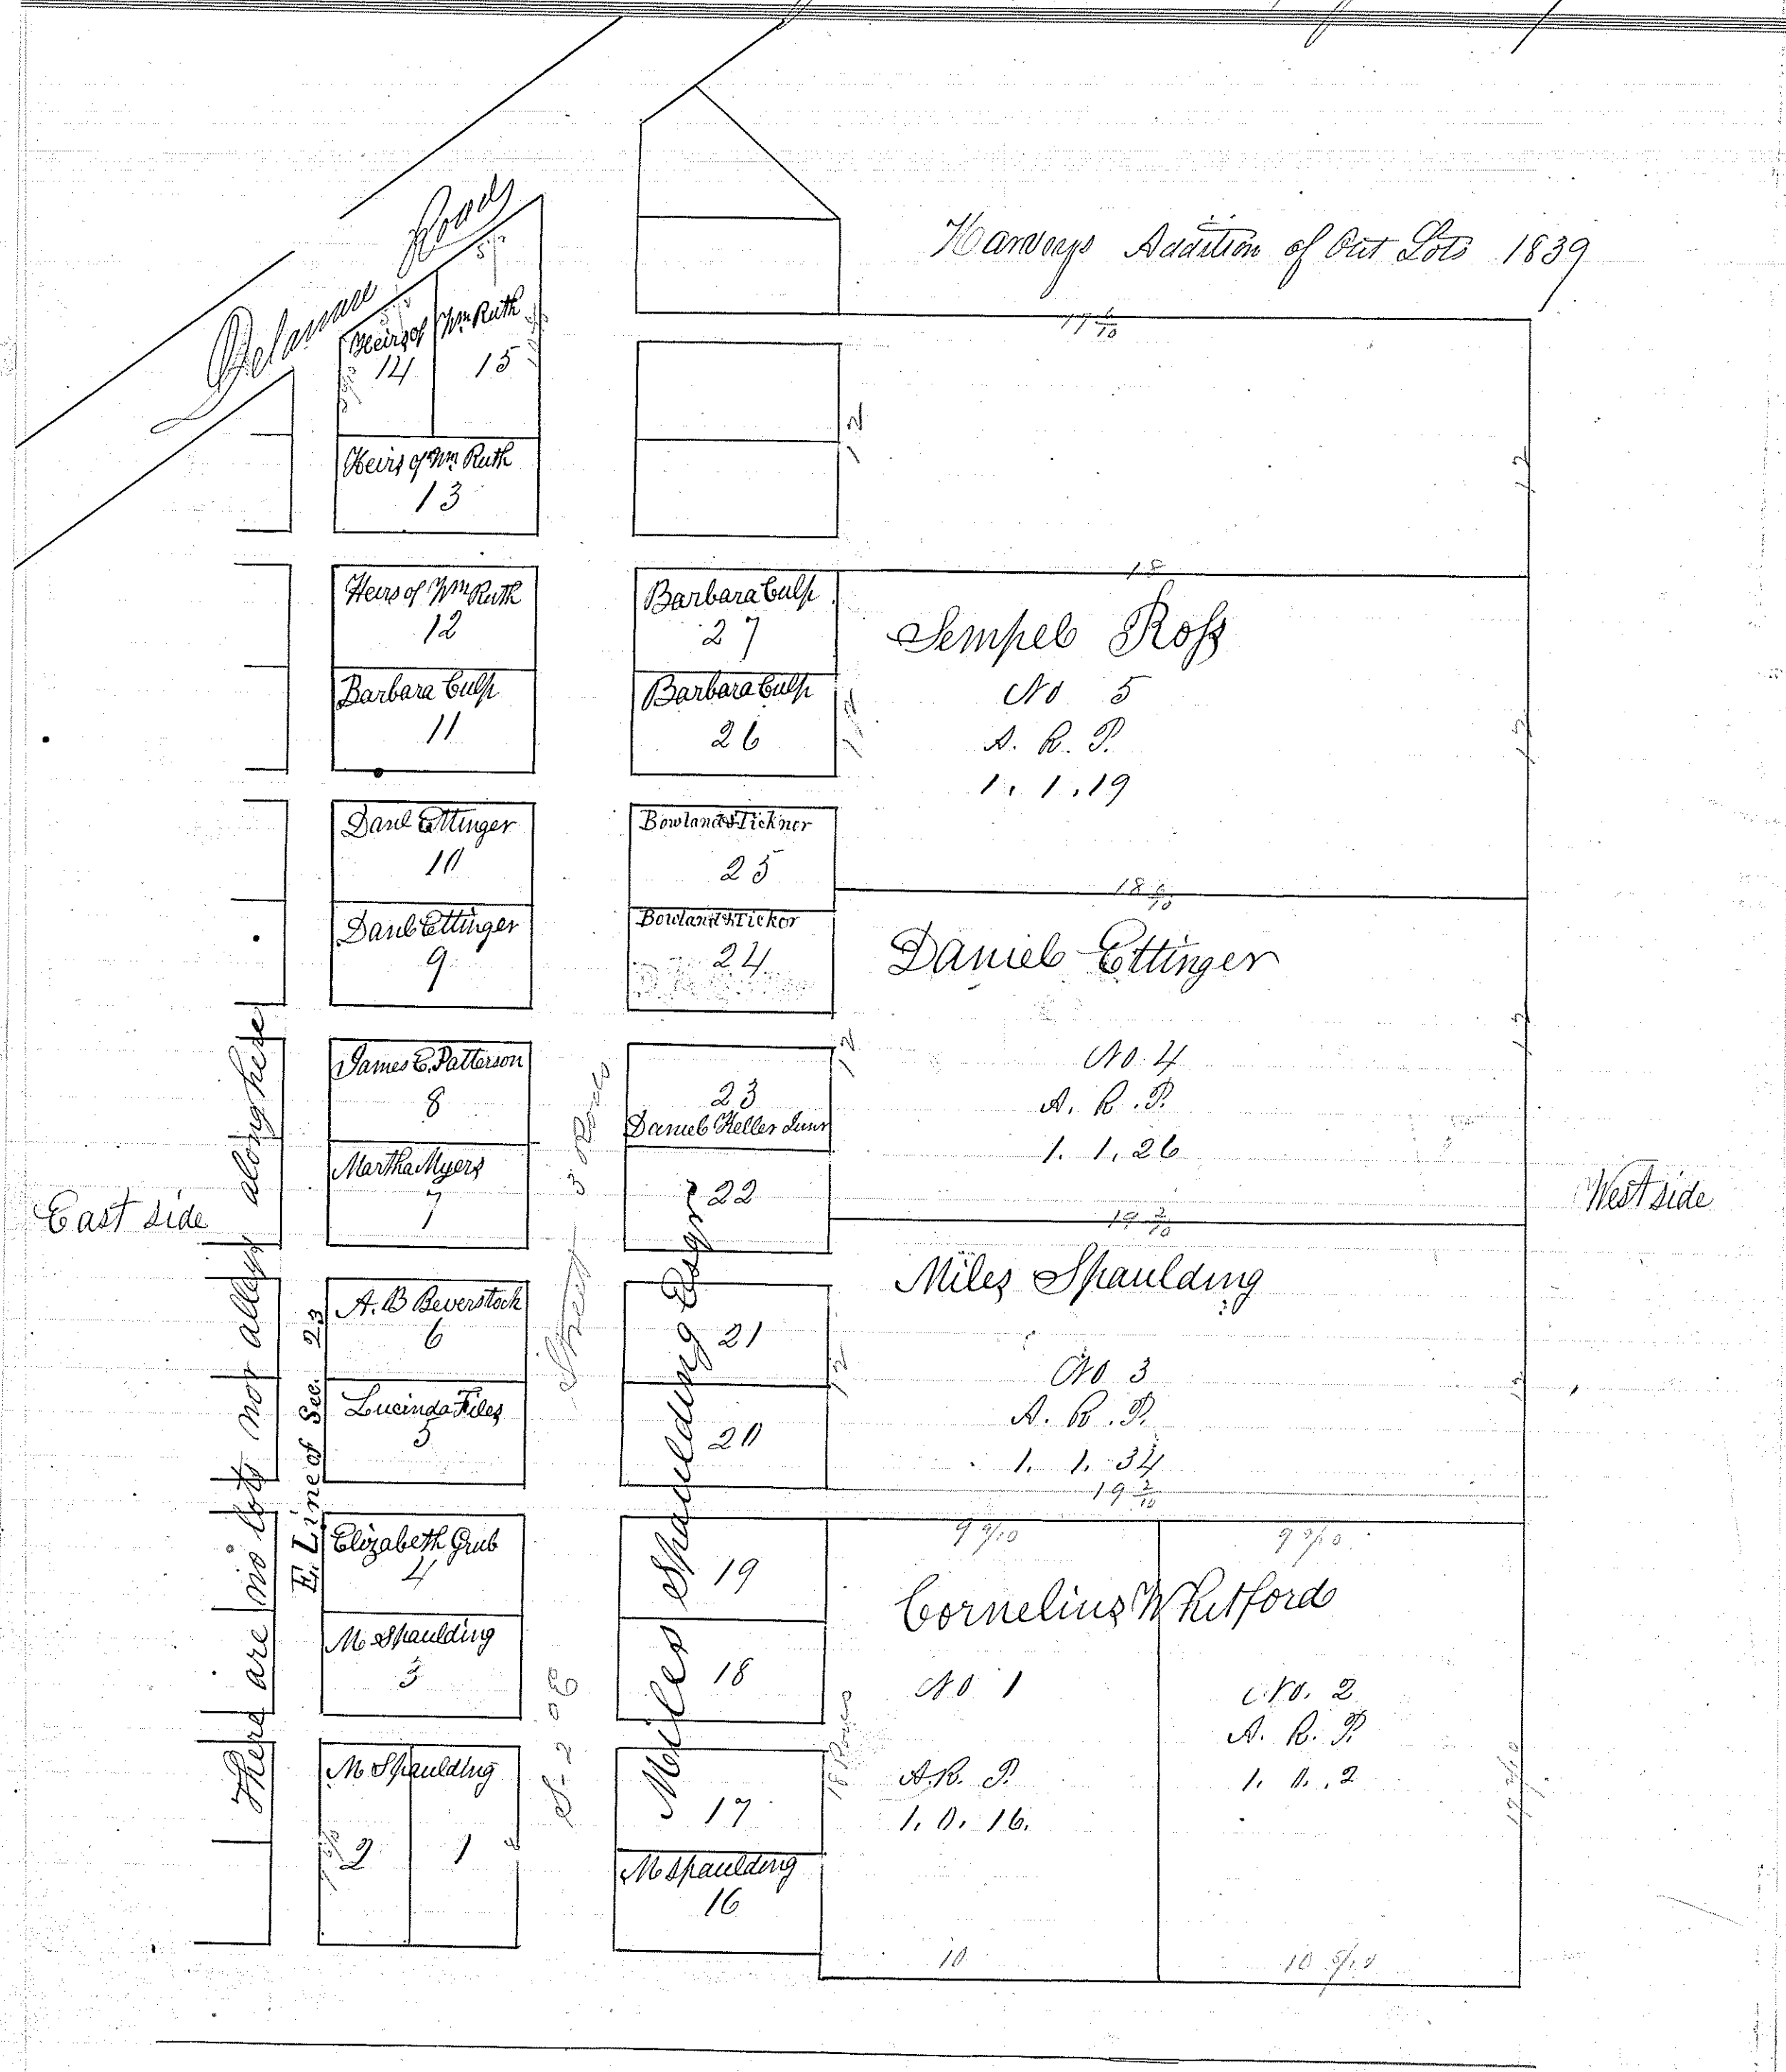 Harveys Addition of Out Lots 1839
Delaware Road
Heirs of Wm Ruth
14
15
Heirs of Wm Ruth
13
Heirs of Wm Ruth
12
Barbara Culp
11
Danl Ettinger
10
Danl Ettinger
9
James C. Patterson
8
Martha Myers
7
A. B Beverstock
6
Lucinda Files
5
Elizabeth Grub
4
M Spaulding
3
M Spaulding
2
1
East side
There are no lots nor alleys along here
E. Line of Sec. 23
Street 3 Rods
S. 2 E
Barbara Culp
27
Barbara Culp
26
Bowland & Tickner
25
Bowland & Ticker
24
23
Daniel Keller
22
21
20
19
18
17
Miles Spaulding Esqr
M Spaulding
16
17 6/10
12
12
18
Sempel Ross
No 5
A. R. P.
1. 1. 19
12
12
18 6/10
Daniel Ettinger
No. 4
A. R. P.
1. 1. 26
12
12
19 2/10
Miles Spaulding
No 3
A. R. P.
1. 1. 34
12
12
19 2/10
9 9/10
9 9/10
Cornelius Whitford
No 1
A. R. P.
1. 0. 16.
10
No. 2
A. R. P.
1. 0. 2
10 5/10
West side